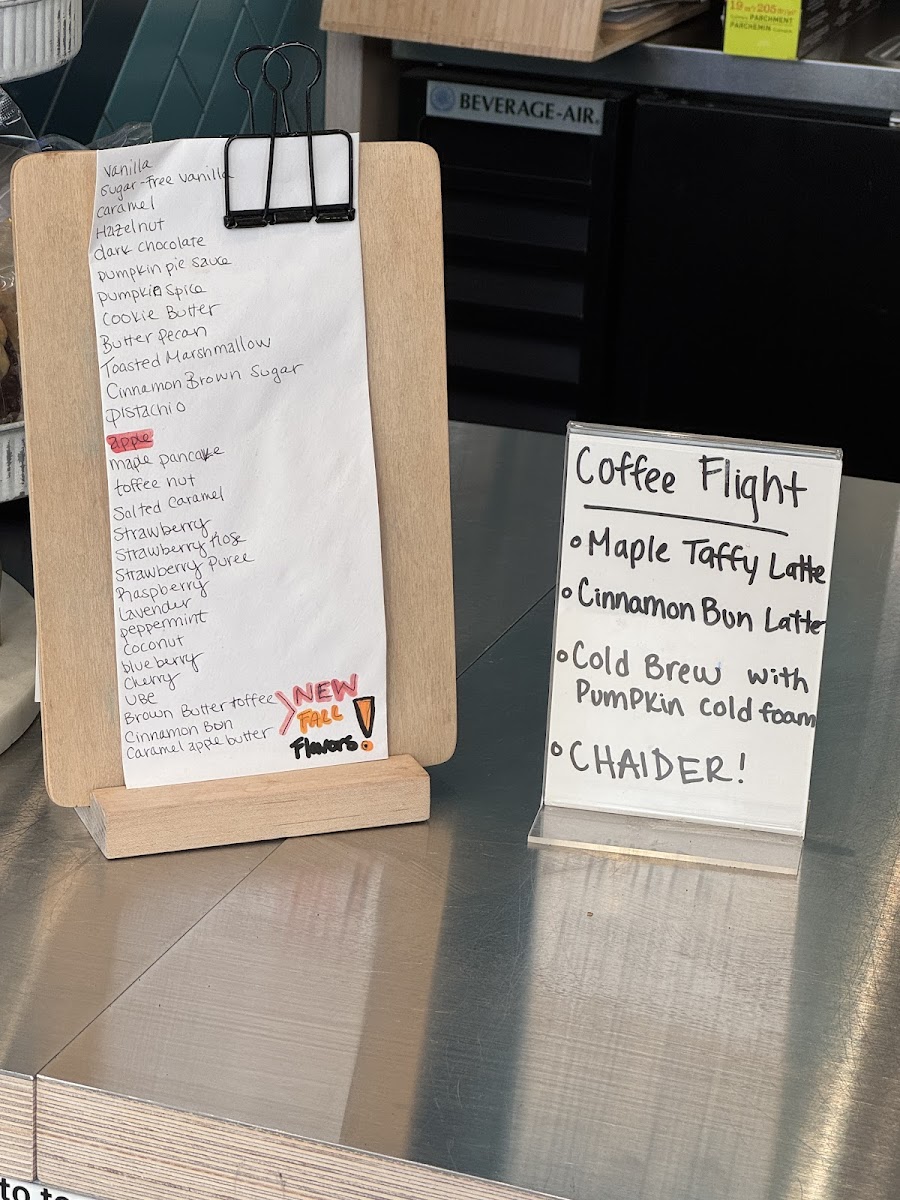 vanilla
sugar-free vanilla
caramel
Hazelnut
dark chocolate
pumpkin pie sauce
pumpkin spice
Cookie Butter
Butter pecan
Toasted Marshmallow
Cinnamon Brown Sugar
pistachio
apple
maple pancake
toffee nut
Salted Caramel
Strawberry
Strawberry Rose
Strawberry Puree
Raspberry
lavender
peppermint
Coconut
blueberry
Cherry
UBE
Brown Butter toffee
Cinnamon Bun
Caramel apple butter
NEW
FALL
Flavors!
BEVERAGE-AIR
PARCHMENT
PARCHEMIN
Coffee Flight
Maple Taffy Latte
Cinnamon Bun Latte
Cold Brew with
PumPKin cold foam
CHAIDER!
to